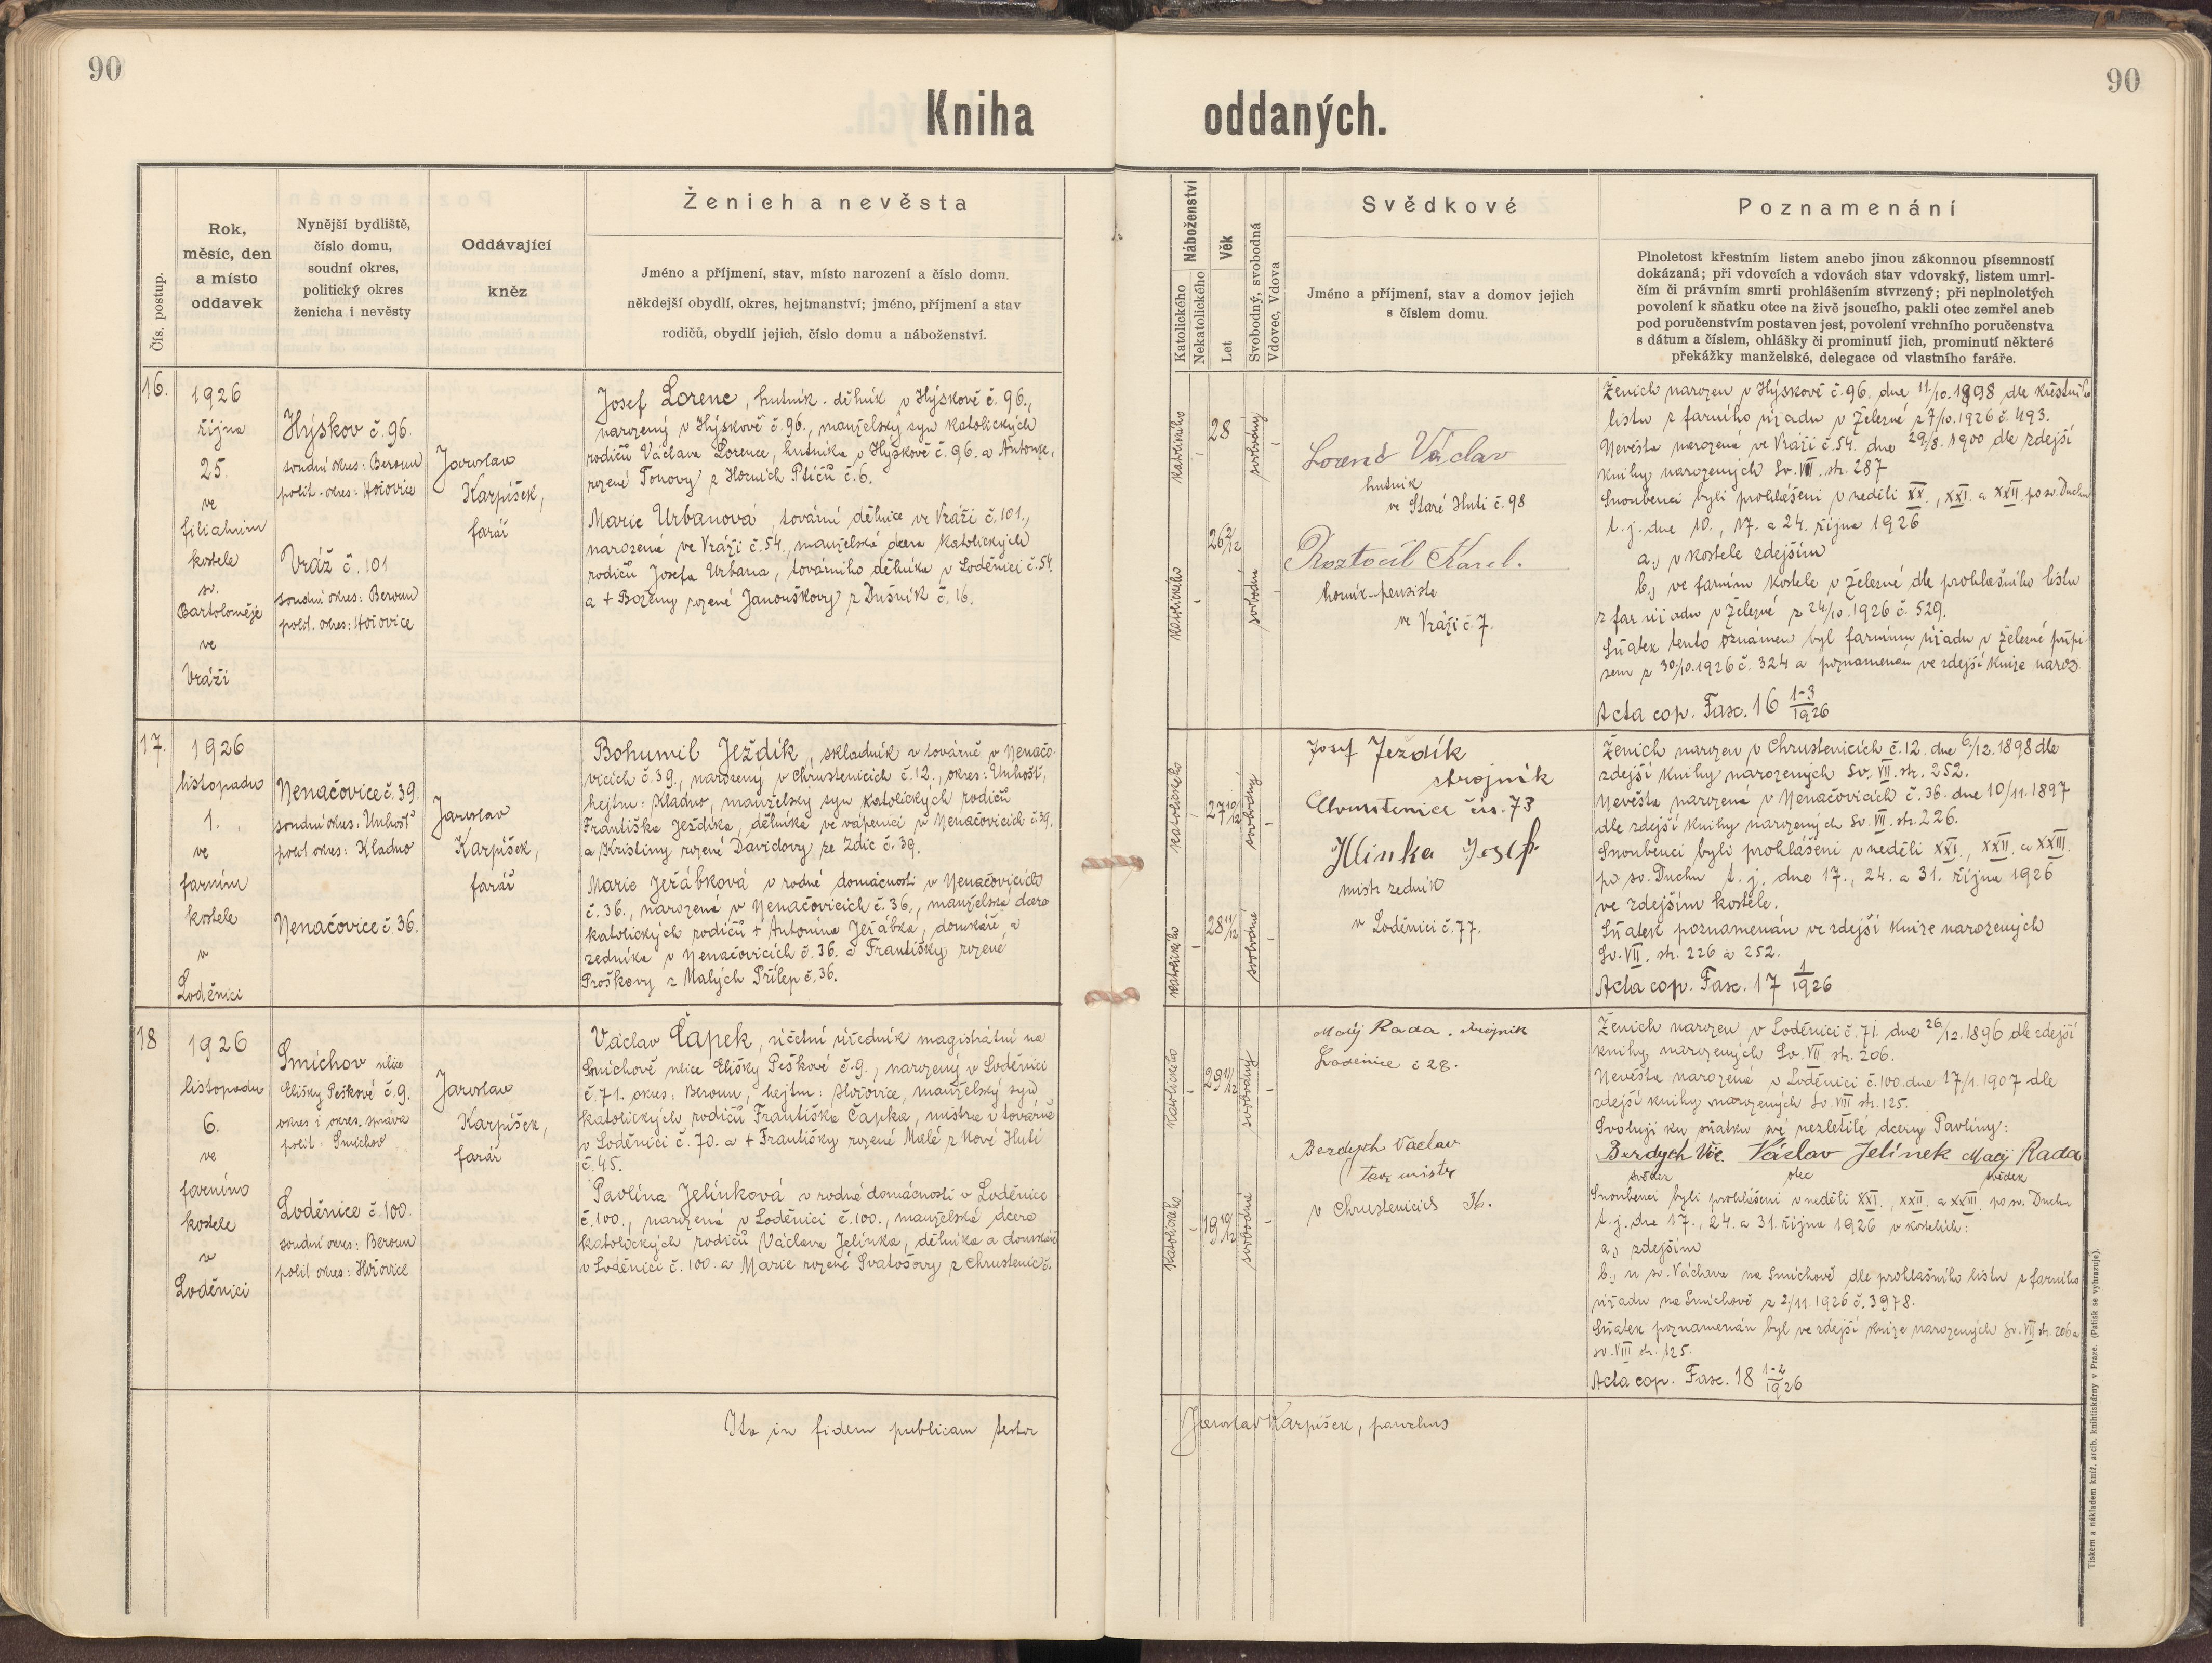 90
90
Kniha oddaných.
Čís. postup.
Rok,
měsíc, den
a místo
oddavek
Nynější bydliště,
číslo domu,
soudní okres,
politický okres
ženicha i nevěsty
Oddávající
kněz
Ženich a nevěsta
Jméno a příjmení, stav, místo narození a číslo domu.
někdejší obydlí, okres, hejtmanství; jméno, příjmení a stav
rodičů, obydlí jejich, číslo domu a náboženství.
Náboženství
Katolického
Nekatolického
Věk
Let
Svobodný, svobodná
Vdovec, Vdova
Svědkové
Jméno a příjmení, stav a domov jejich
s číslem domu.
Poznamenání
Plnoletost křestním listem anebo jinou zákonnou písemností
dokázaná; při vdovcích a vdovách stav vdovský, listem umrl-
čím či právním smrti prohlášením stvrzený; při neplnoletých
povolení k sňatku otce na živě jsoucího, pakli otec zemřel aneb
pod poručenstvím postaven jest, povolení vrchního poručenstva
s dátum a číslem, ohlášky či prominutí jich, prominutí některé
překážky manželské, delegace od vlastního faráře.
16.
1926
října
25.
ve
filialním
kostele
sv.
Bartoloměje
ve
Vráži
Hýskov č. 96.
soudní okres: Beroun
polit. okres: Hořovice
Vráž č. 101
soudní okres: Beroun
polit. okres: Hořovice
Jaroslav
Karpíšek,
farář
Josef Lorenc, hutník - dělník v Hýskově č. 96.,
narozený v Hýskově č. 96., manželský syn katolických
rodičů Václava Lorence, hutníka v Hýskově č. 96. a Antonie,
rozené Tonovy z Horních Ptičů č. 6.
Marie Urbanová, tovární dělnice ve Vráži č. 101.,
narozená ve Vráži č. 54., manželská dcera katolických
rodičů Josefa Urbana, továrního dělníka v Loděnici č. 54.
a + Boženy rozené Janouškovy z Dušník č. 16.
katolického
28
svobodný
katolického
26 2/12
svobodná
Lorenc Václav
hutník
ve Staré Huti č. 98
Roztočil Karel.
horník-pensista
ve Vráži č. 7.
Ženich narozen v Hýskově č. 96. dne 11./10. 1898 dle křestního
listu z farního úřadu v Železné z 7/10. 1926 č. 493.
Nevěsta narozená ve Vráži č. 54. dne 29/8. 1900 dle zdejší
knihy narozených Sv. VII. str. 287
Snoubenci byli prohlášeni v neděli XX., XXI. a XXII po sv. Duchu
t. j. dne 10., 17. a 24. října 1926
a.) v kostele zdejším
b.) ve farním kostele v Železné dle prohlašního listu
z far. úřadu v Železné z 24/10. 1926 č. 529.
Sňatek tento oznámen byl farnímu úřadu v Železné přípi-
sem z 30/10. 1926 č. 324 a poznamenán ve zdejší knize naroz.
Acta cop. Fasc. 16 1-3/1926
17.
1926
listopadu
1.
ve
farním
kostele
v
Loděnici
Nenačovice č. 39.
soudní okres: Unhošť
polit okres: Kladno
Nenačovice č. 36.
Jaroslav
Karpíšek,
farář
Bohumil Ježdík, skladník v továrně v Nenačo-
vicích č. 39., narozený v Chrustenicích č. 12., okres: Unhošť,
hejtm: Kladno, manželský syn katolických rodičů
Františka Ježdíka, dělníka ve vápenici v Nenačovicích č. 39.
a Kristiny rozené Davidovy ze Zdic č. 39.
Marie Jeřábková v rodné domácnosti v Nenačovicích
č. 36., narozená v Nenačovicích č. 36., manželská dcera
katolických rodičů + Antonína Jeřábka, domkáře, a
zedníka v Nenačovicích č. 36. a Františky rozené
Proškovy z Malých Přílep č. 36.
katolického
27 10/12
svobodný
katolického
28 11/12
svobodná
Josef Ježdík
strojník
Chrustenice čís. 73
Hlinka Josef
mistr zedník
v Loděnici č. 77.
Ženich narozen v Chrustenicích č. 12. dne 6./12. 1898 dle
zdejší knihy narozených Sv. VII. str. 252.
Nevěsta narozená v Nenačovicích č. 36. dne 10/11. 1897
dle zdejší knihy narozených Sv. VII. str. 226.
Snoubenci byli prohlášeni v neděli XXI., XXII. a XXIII.
po sv. Duchu t. j. dne 17., 24. a 31. října 1926
ve zdejším kostele.
Sňatek poznamenán ve zdejší knize narozených
Sv. VII. str. 226 a 252.
Acta cop. Fasc. 17 1/1926
18
1926
listopadu
6.
ve
farním
kostele
v
Loděnici
Smíchov ulice
Elišky Peškové č. 9.
okres i okres. správa
polit. Smíchov
Loděnice č. 100.
soudní okres: Beroun
polit okres: Hořovice
Jaroslav
Karpíšek,
farář
Václav Čapek, účetní úředník magistrátní na
Smíchově ulice Elišky Peškové č. 9., narozený v Loděnici
č. 71. okres: Beroun, hejtm: Hořovice, manželský syn
katolických rodičů Františka Čapka, mistra v továrně
v Loděnici č. 70. a + Františky rozené Malé z Nové Huti
č. 45.
Pavlína Jelínková v rodné domácnosti v Loděnice
č. 100., narozená v Loděnici č. 100., manželská dcera
katolických rodičů Václava Jelínka, dělníka a domkáře
v Loděnici č. 100. a Marie rozené Svatošovy z Chrustenic č.
katolického
29 11/12
svobodný
katolického
19 10/12
svobodná
Matěj Rada. strojník
Loděnice č 28.
Berdych Václav
mistr
v Chrustenicích 36.
Ženich narozen v Loděnici č. 71. dne 26/12. 1896 dle zdejší
knihy narozených Sv. VII. str. 206.
Nevěsta narozená v Loděnici č. 100. dne 17/1. 1907 dle
zdejší knihy narozených Sv. VIII str. 125.
Svoluji ku sňatku své nezletilé dcery Pavlíny:
Berdych Vác. Václav Jelínek Matěj Rada
svědek otec svědek
Snoubenci byli prohlášeni v neděli XXI., XXII. a XXIII po sv. Duchu
t. j. dne 17., 24. a 31. října 1926 v kostelích:
a.) zdejším
b.) u sv. Václava na Smíchově dle prohlašního listu z farního
úřadu na Smíchově z 2./11. 1926 č. 3978.
Sňatek poznamenán byl ve zdejší knize narozených Sv. VII str. 206 a
sv. VIII str. 125.
Acta cop. Fasc. 18 1-2/1926
Ita in fidem publicam testor
Jaroslav Karpíšek, parochus
Tiskem a nákladem kníž. arcib. knihtiskárny v Praze. (Patisk se vyhrazuje).